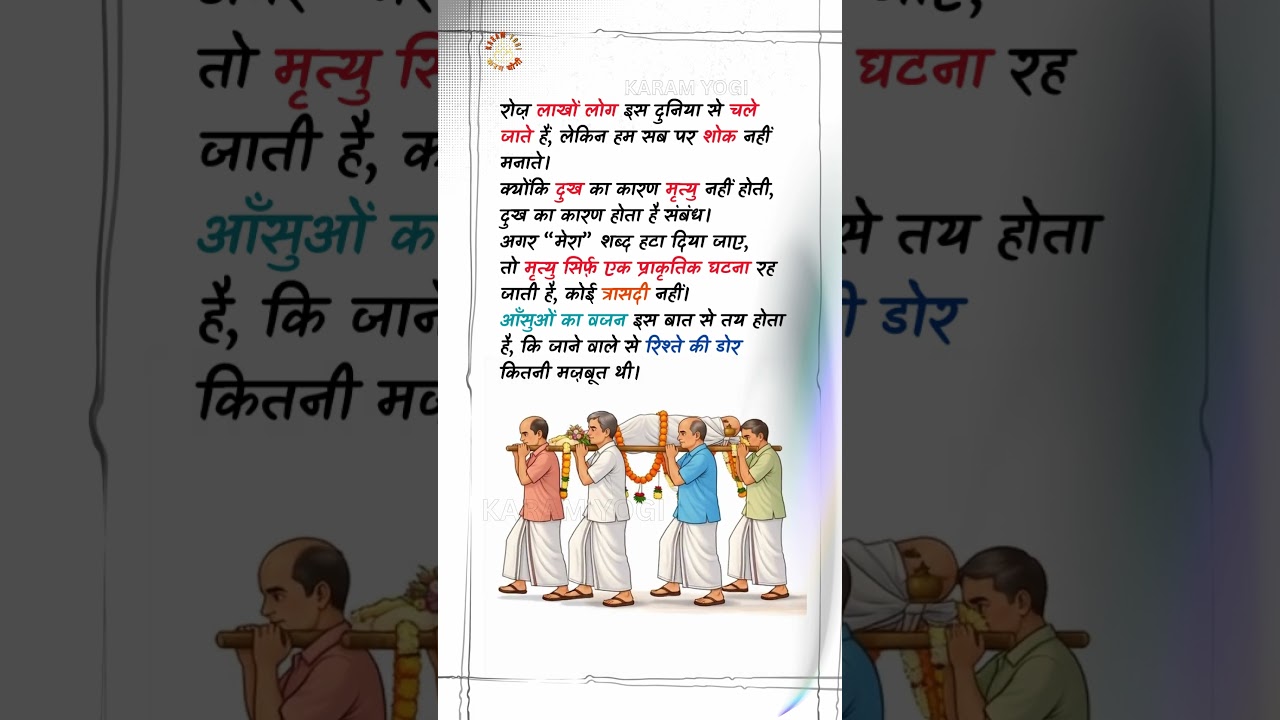 KARAM YOGI
रोज़ लाखों लोग इस दुनिया से चले
जाते हैं, लेकिन हम सब पर शोक नहीं
मनाते।
क्योंकि दुख का कारण मृत्यु नहीं होती,
दुख का कारण होता है संबंध।
अगर “मेरा” शब्द हटा दिया जाए,
तो मृत्यु सिर्फ़ एक प्राकृतिक घटना रह
जाती है, कोई त्रासदी नहीं।
आँसुओं का वजन इस बात से तय होता
है, कि जाने वाले से रिश्ते की डोर
कितनी मज़बूत थी।
KARAM YOGI